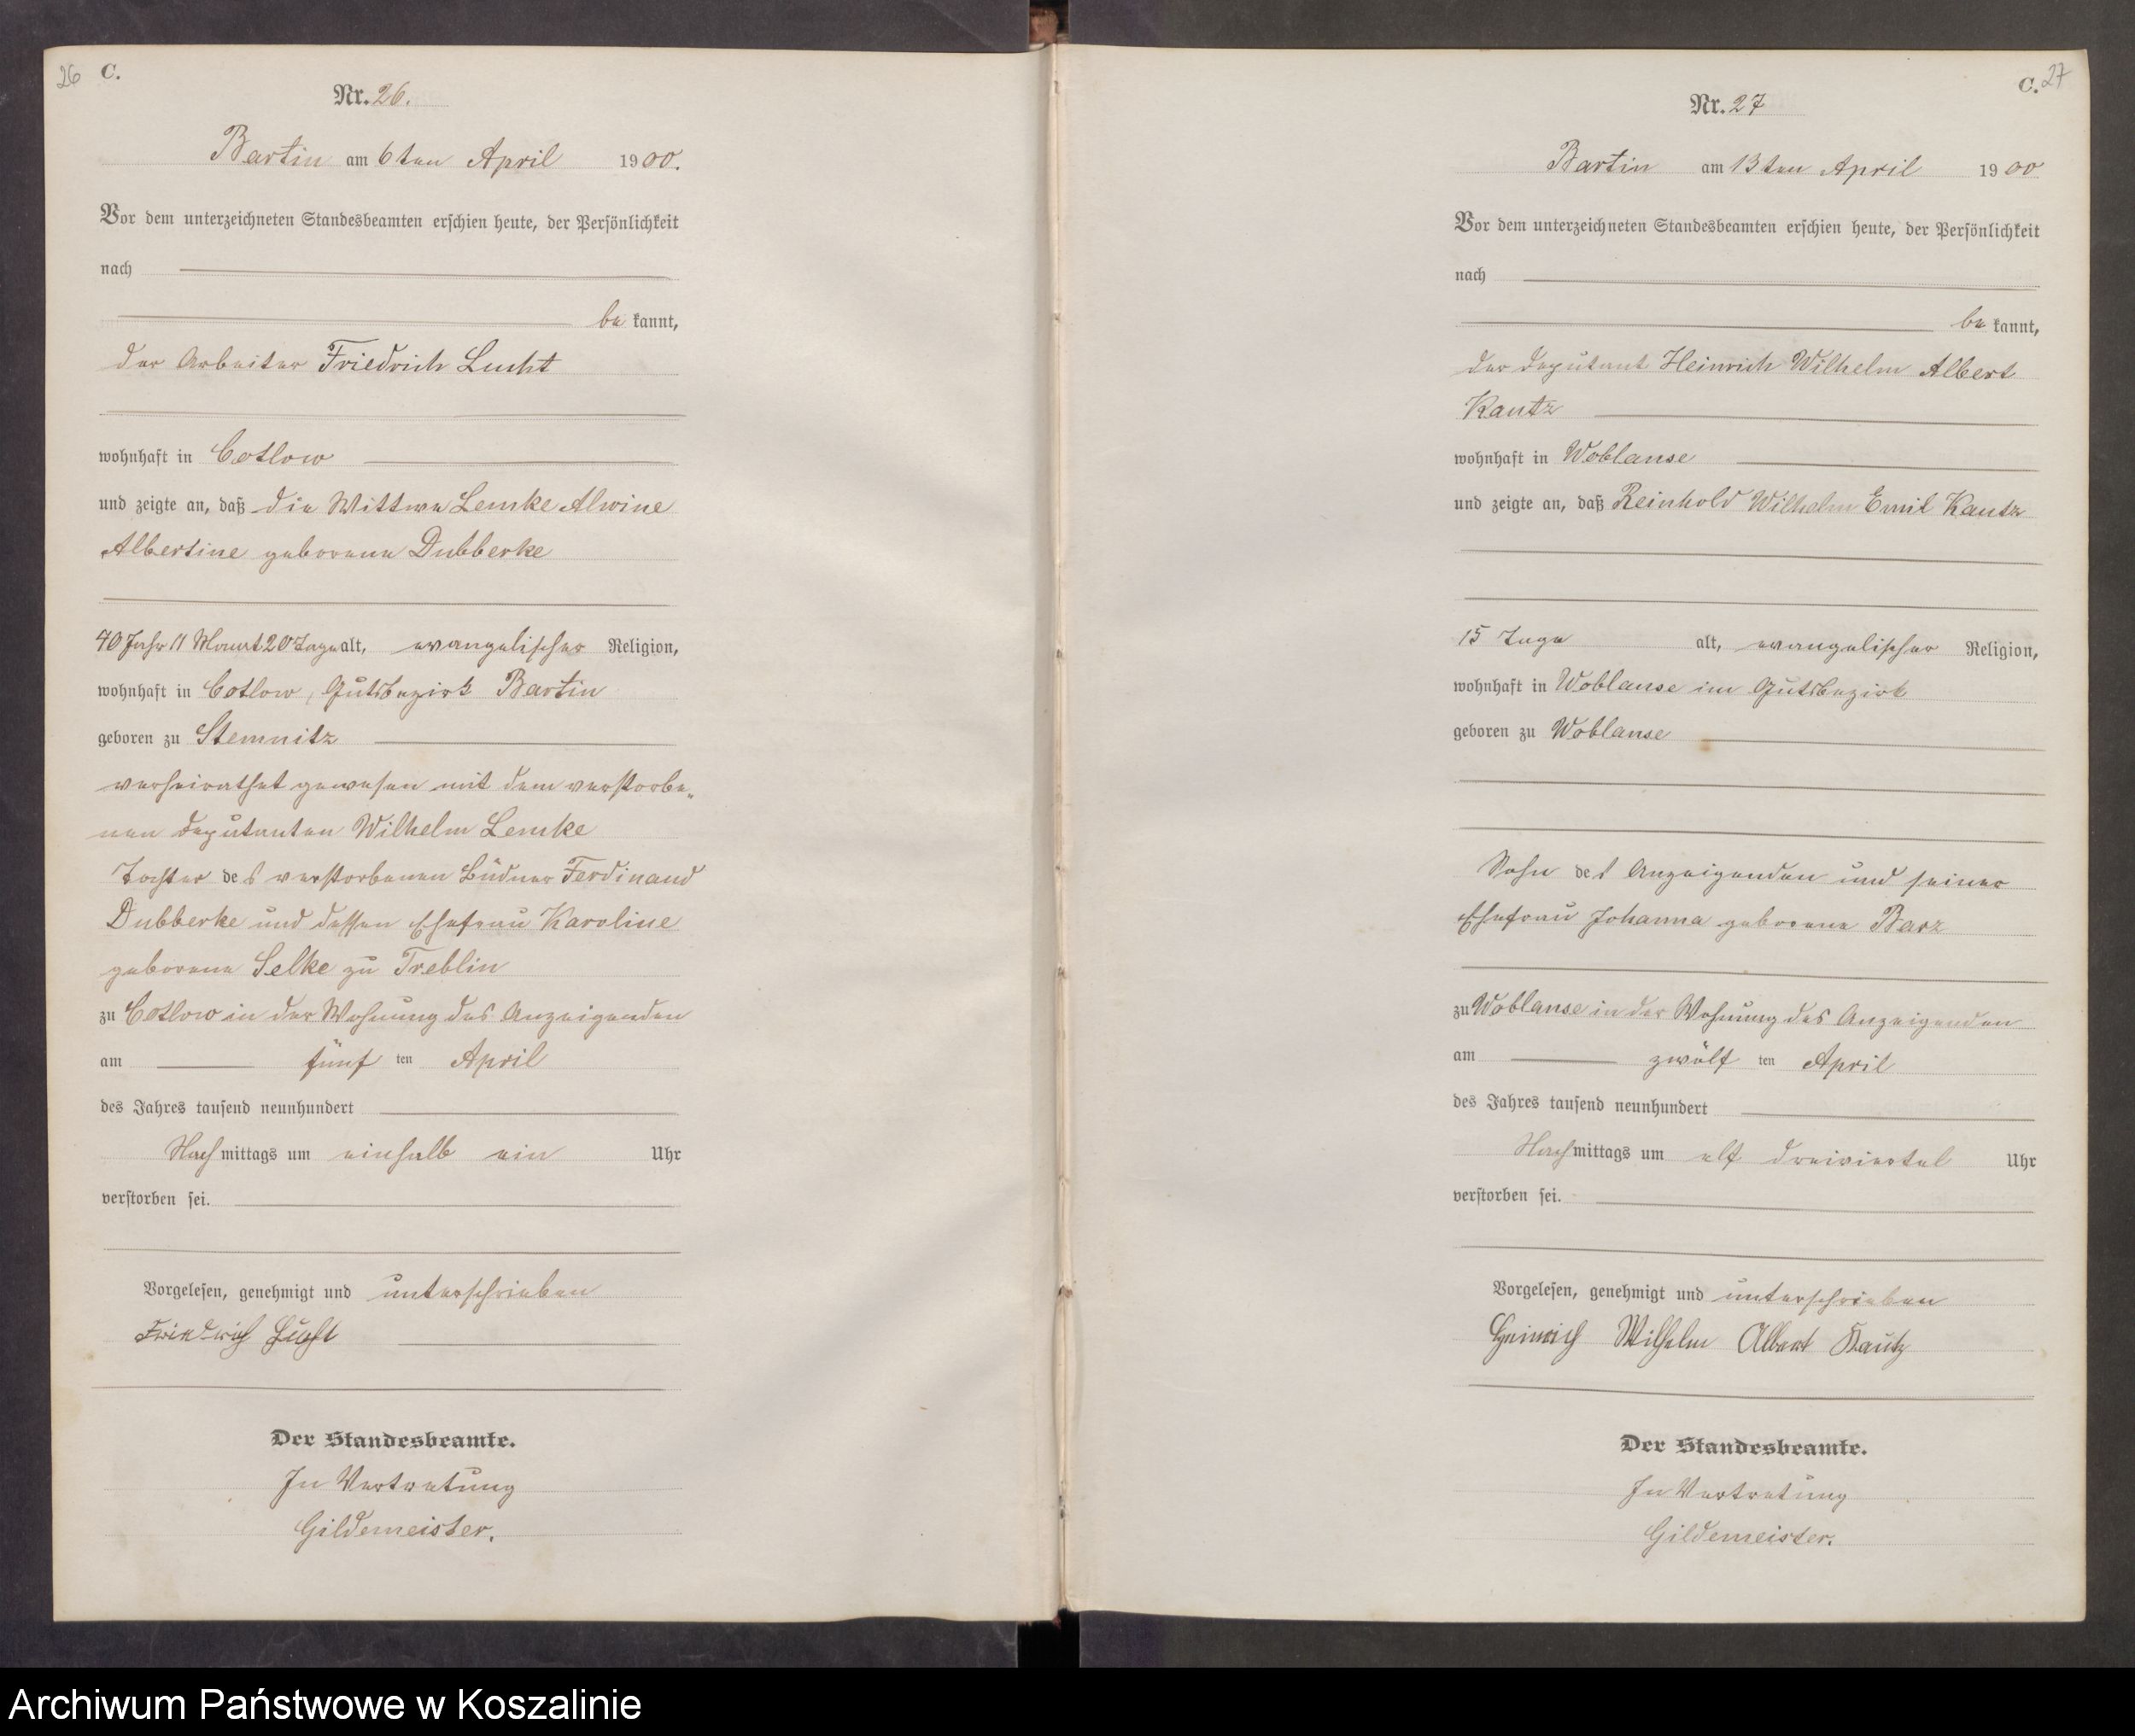 26 C.
Nr. 26.
Bartin am 6ten April 1900.
Vor dem unterzeichneten Standesbeamten erschien heute, der Persönlichkeit
nach
be kannt,
der Arbeiter Friedrich Lucht
wohnhaft in Cotlow
und zeigte an, daß die Wittwe Lemke Alwine
Albertine geborene Dubberke
40 Jahr 11 Monat 20 Tage alt, evangelischer Religion,
wohnhaft in Cotlow, Gutsbezirk Bartin
geboren zu Stemnitz
verheirathet gewesen mit dem verstorbe„
nen Deputanten Wilhelm Lemke
Tochter des verstorbenen Büdner Ferdinand
Dubberke und dessen Ehefrau Karoline
geborene Selke zu Treblin
zu Cotlow in der Wohnung des Anzeigenden
am fünf ten April
des Jahres tausend neunhundert
Nachmittags um einhalb ein Uhr
verstorben sei.
Vorgelesen, genehmigt und unterschrieben
Friedrich Lucht
Der Standesbeamte.
In Vertretung
Gildemeister.
C. 27
Nr. 27
Bartin am 13ten April 1900
Vor dem unterzeichneten Standesbeamten erschien heute, der Persönlichkeit
nach
be kannt,
der Deputant Heinrich Wilhelm Albert
Kautz
wohnhaft in Woblanse
und zeigte an, daß Reinhold Wilhelm Emil Kautz
15 Tage alt, evangelischer Religion,
wohnhaft in Woblanse im Gutsbezirk
geboren zu Woblanse
Sohn des Anzeigenden und seiner
Ehefrau Johanna geborene Barz
zu Woblanse in der Wohnung des Anzeigenden
am zwölf ten April
des Jahres tausend neunhundert
Nachmittags um elf dreiviertel Uhr
verstorben sei.
Vorgelesen, genehmigt und unterschrieben
Heinrich Wilhelm Albert Kautz
Der Standesbeamte.
In Vertretung
Gildemeister.
Archiwum Państwowe w Koszalinie